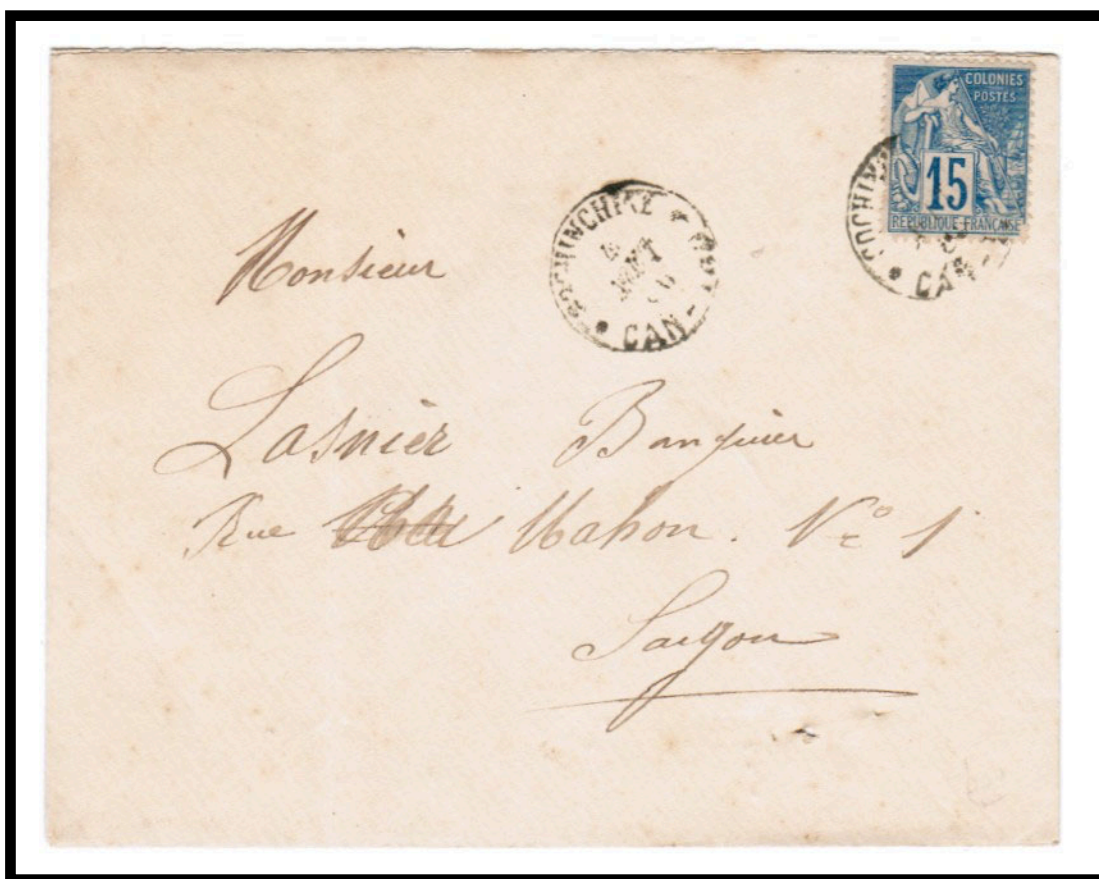 COLONIES
POSTES
15
REPUBLIQUE FRANÇAISE
COCHINCHINE
CAN-
Monsieur
Lasnier Banquier
Rue Mahon. No 1
Saigon